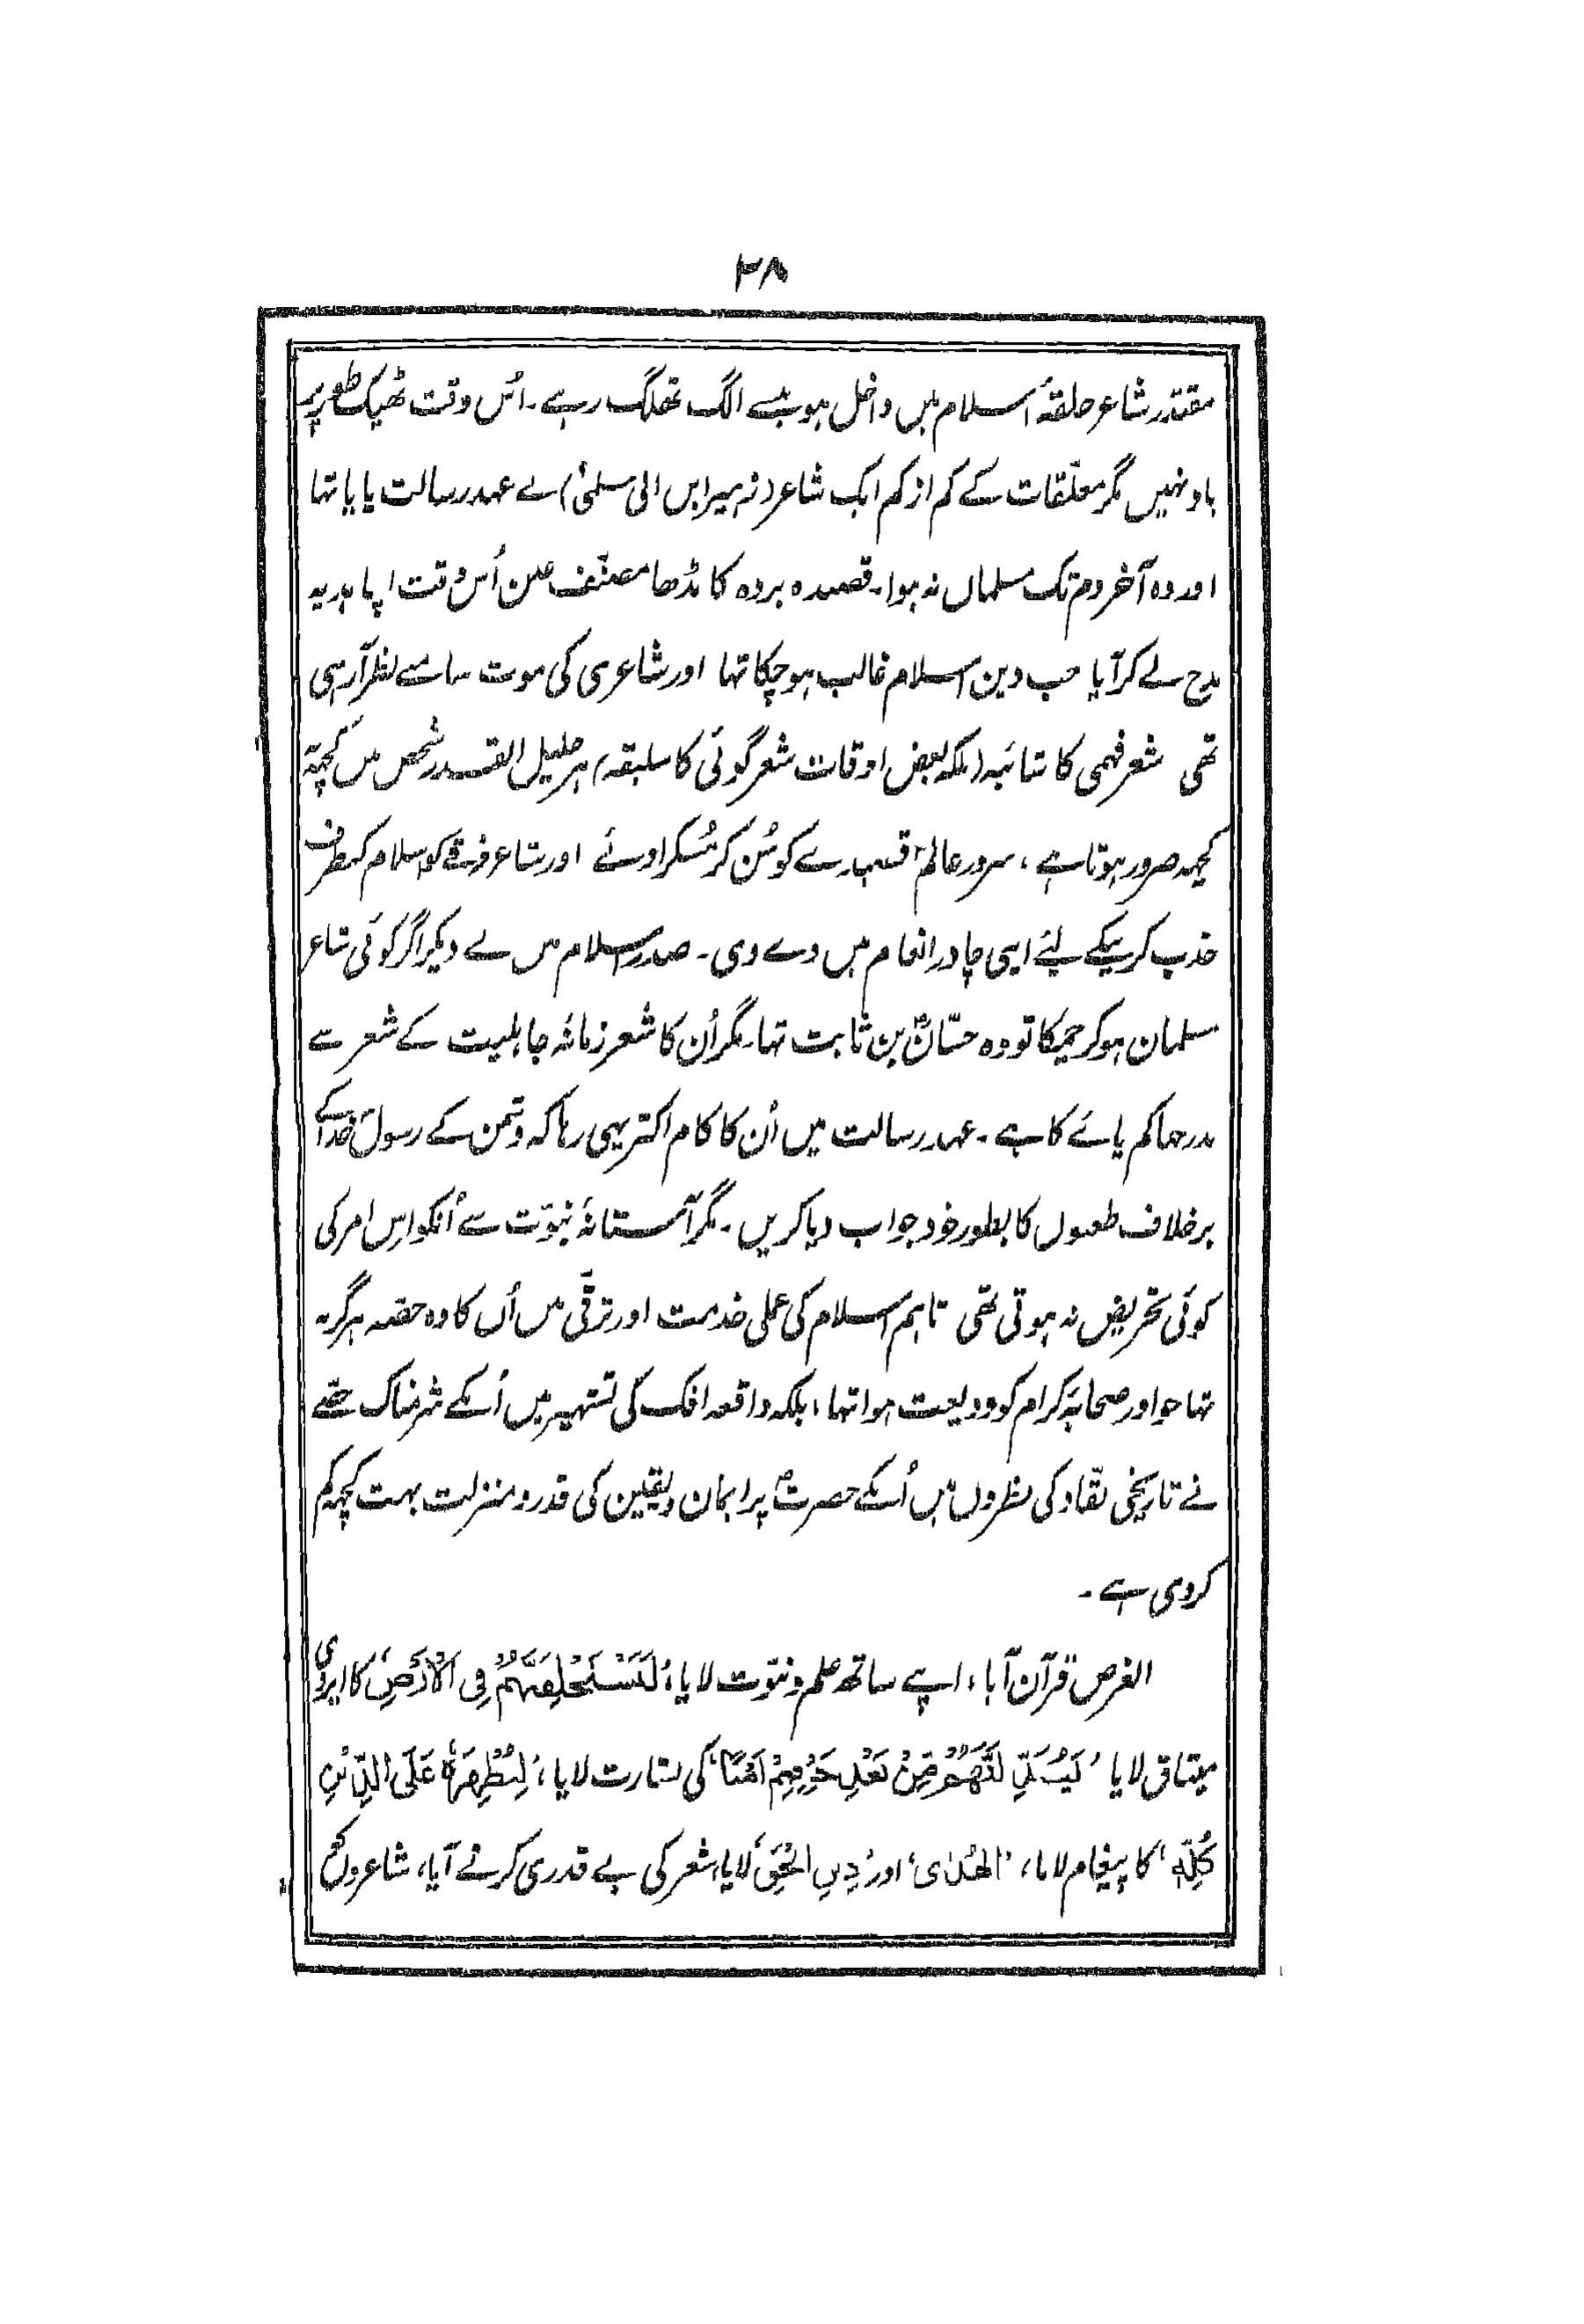 ۳۸
مقتدر شاعر حلقۂ اسلام میں داخل ہونیسے الگ تھلگ رہے۔ اُس وقت ٹھیک طور پر
یاد نہیں مگر معلّقات کے کم از کم ایک شاعر (زہیر ابن ابی سلمیٰ) نے عہد رسالت پایا تہا
اور وہ آخر دم تک مسلمان نہ ہوا۔ قصیدہ بردہ کا بڈھا مصنّف عین اُس وقت اپنا ہدیہ
مدح لے کر آیا جب دین اسلام غالب ہو چکا تہا اور شاعری کی موت سامنے نظر آ رہی
تھی شعر فہمی کا شائبہ (بلکہ بعض اوقات شعر گوئی کا سلیقہ) ہر جلیل القدر شخص میں کچہہ نہ
کچہہ ضرور ہوتا ہے، سرور عالمؐ قصیدے کو سُن کر مُسکرا دئے اور شاعر فرقے کو اسلام کیطرف
جذب کرنیکے لیئے اپنی چادر انعام میں دے دی۔ صدر اسلام میں لے دیکر اگر کوئی شاعر
مسلمان ہو کر چمکا تو وہ حسّانؓ بن ثابت تہا۔ مگر اُن کا شعر زمانۂ جاہلیت کے شعر سے
بدرجہا کم پائے کا ہے۔ عہد رسالت میں اُن کا کام اکثر یہی رہا کہ دشمن کے رسولؐ خدا کے
برخلاف طعنوں کا بطور خود جواب دیا کریں۔ مگر آستانۂ نبوّت سے اُنکو اِس امر کی
کوئی تحریض نہ ہوتی تھی تاہم اسلام کی عملی خدمت اور ترقّی میں اُن کا وہ حصّہ ہرگز نہ
تہا جو اور صحابۂ کرام کو ودیعت ہوا تہا، بلکہ واقعہ افک کی تشہیر میں اُنکے شرمناک حصّے
نے تاریخی نقّاد کی نظروں میں اُنکے حضرتؐ پر ایمان و یقین کی قدر و منزلت بہت کچہہ کم
کر دی ہے۔
الغرض قرآن آیا، اپنے ساتھ علم و نبوّت لایا، 'لَیَسْتَخْلِفَنَّہُمْ فِی الْاَرْضِ' کا ایزدی
میثاق لایا 'لَیُبَدِّلَنَّہُمْ مِّنْ بَعْدِ خَوْفِہِمْ اَمْنًا' کی بشارت لایا، 'لِیُظْہِرَہٗ عَلَی الدِّیْنِ
کُلِّہٖ' کا پیغام لایا، 'الْھُدٰی' اور 'دِیْنِ الْحَقِّ' لایا، شعر کی بے قدری کرنے آیا، شاعروں کی